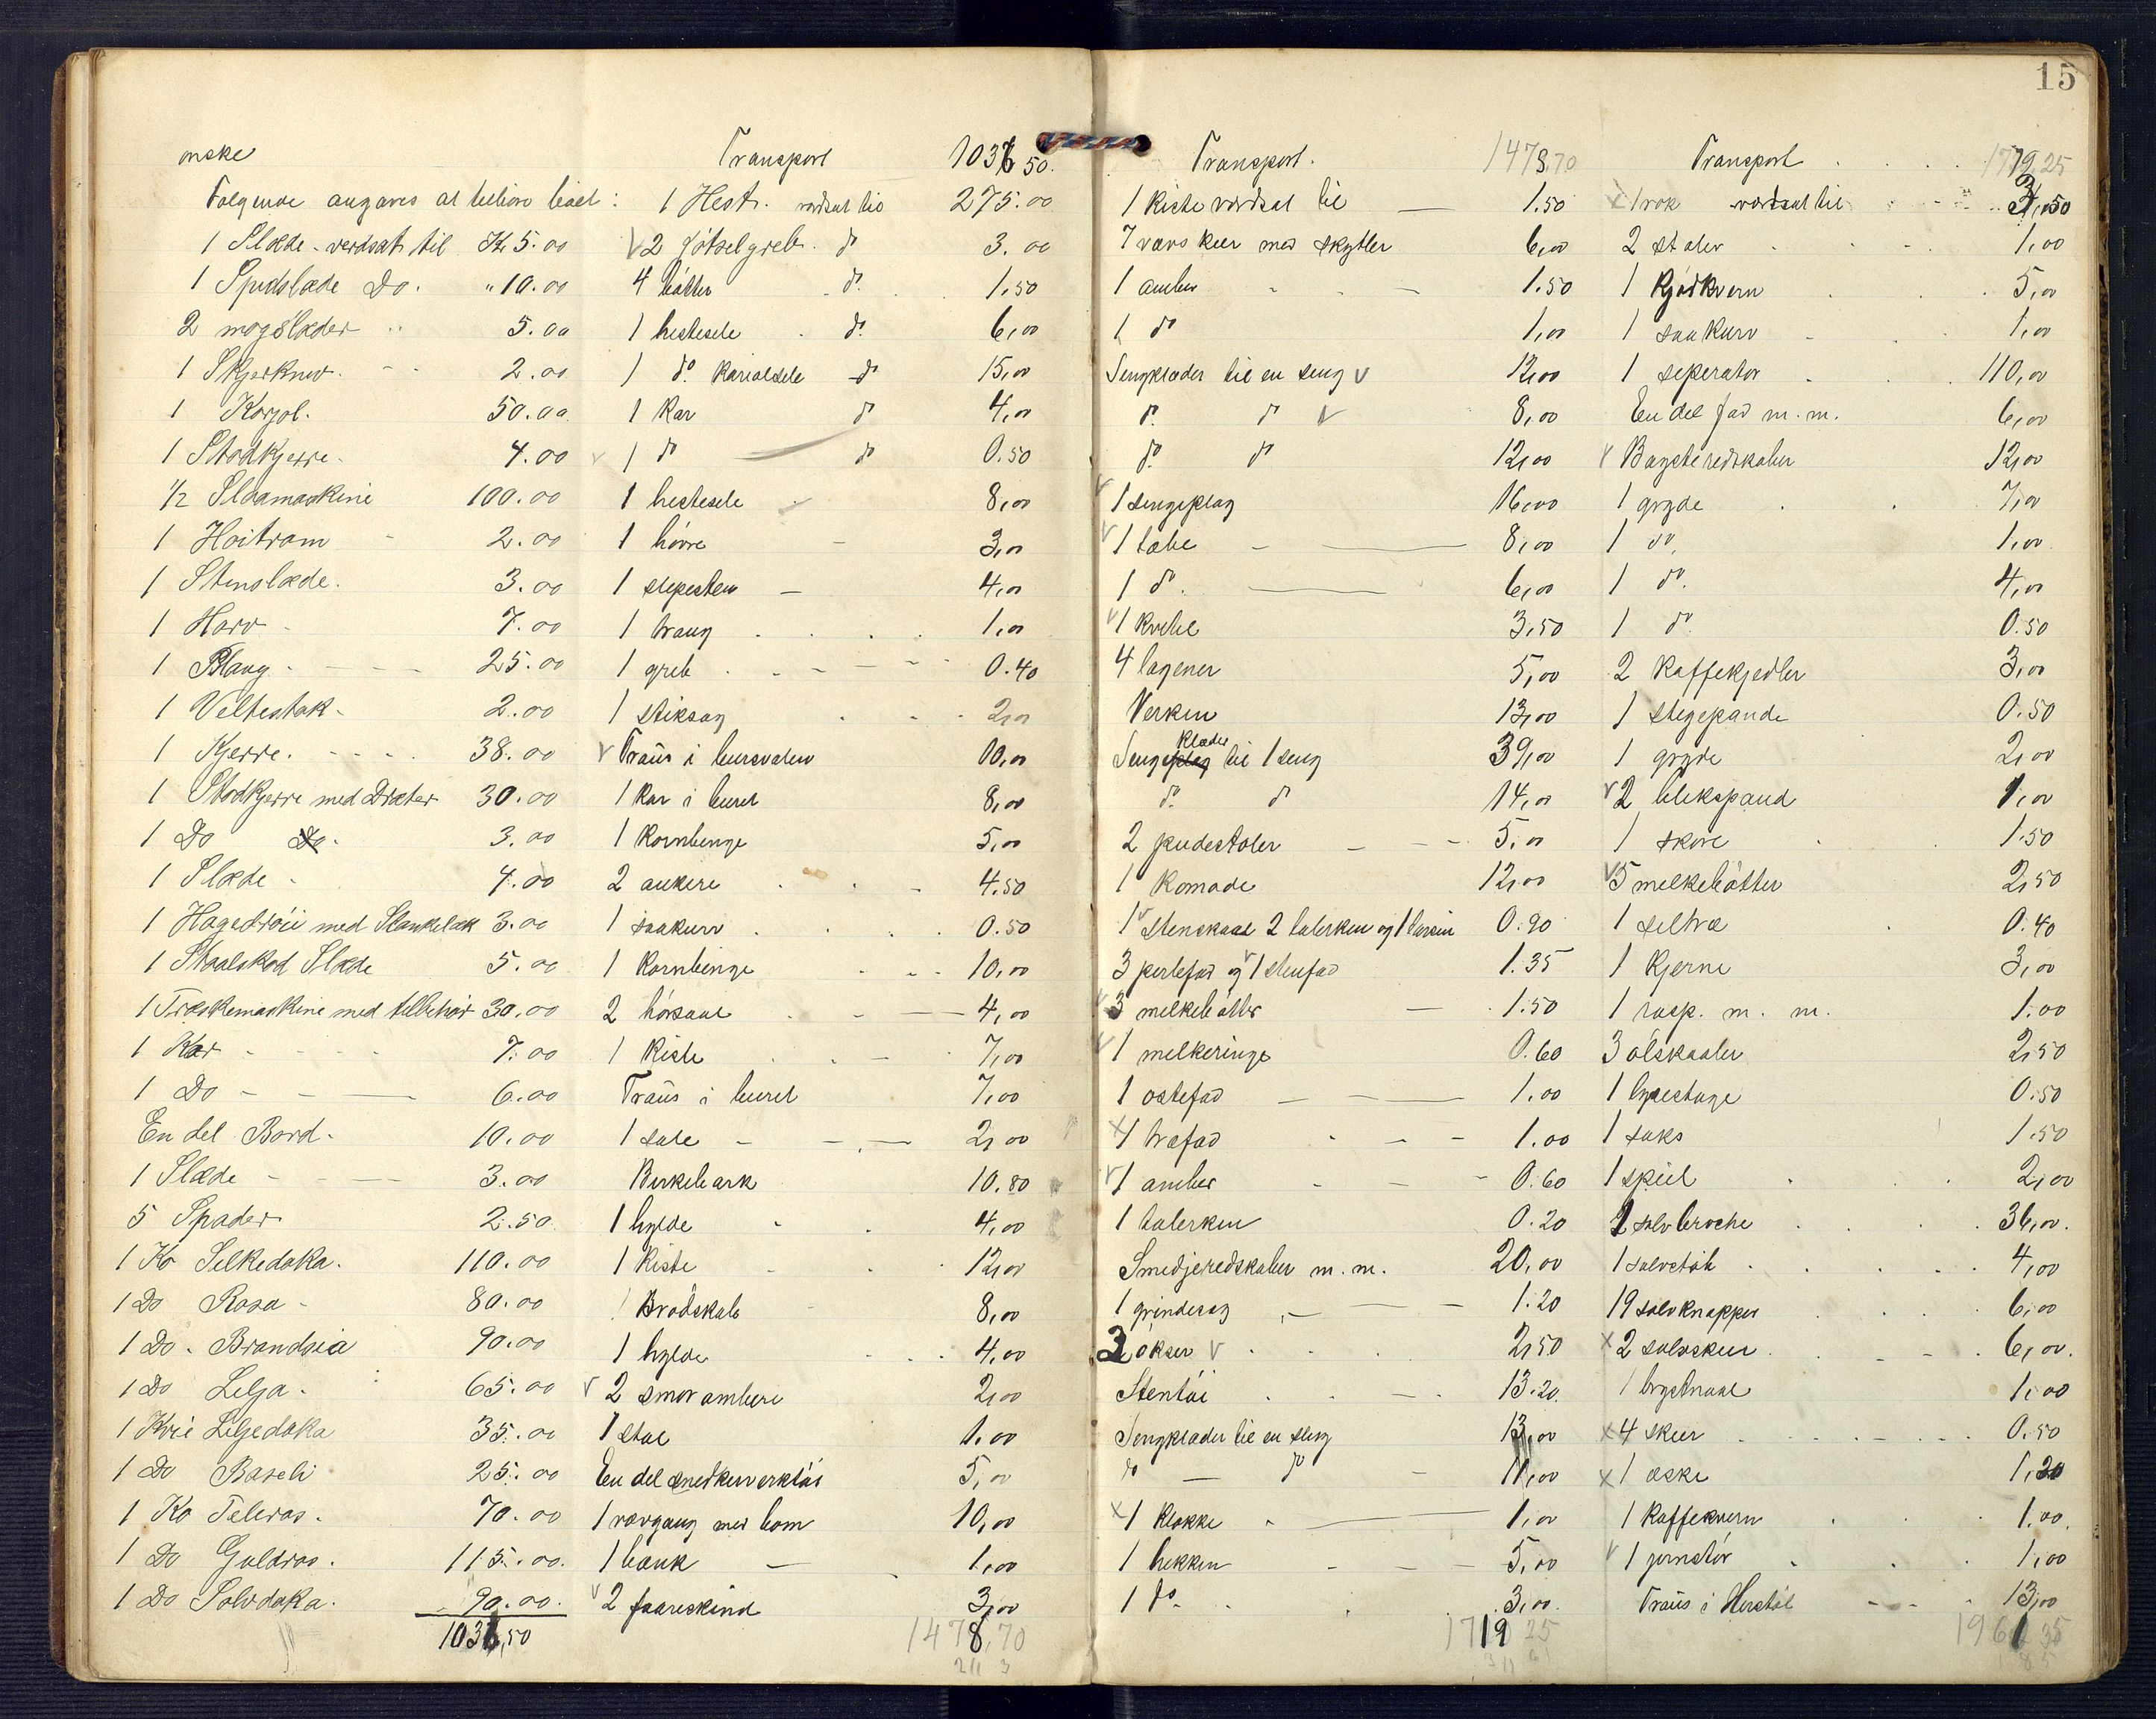 15
ønske
Følgende angaves at tilhøre boet:
1 Slæde - verdsat til Kr 5.00
1 Spidslæde Do. " 10.00
2 møgslæder " 5.00
1 Skjerkniv. 2.00
1 Karjol. 50.00
1 Stodkjerre. 4.00
1/2 Slaamaskine 100.00
1 Hoitrom 2.00
1 Stenslæde. 3.00
1 Harv 7.00
1 Plaug 25.00
1 Veltestok 2.00
1 Kjerre. 38.00
1 Stodkjerre med Dræter 30.00
1 Do Do. 3.00
1 Slæde 4.00
1 Hagedrói med Slankelæk 3.00
1 Staalskod Slæde 5.00
1 Træskemaskine med tilbehør 30.00
1 Kar 7.00
1 Do 6.00
En del Bord. 10.00
1 Slæde 3.00
5 Spader 2.50
1 Ko Silkedaka. 110.00
1 Do Rosa 80.00
1 Do. Brandsia 90.00
1 Do Lilja. 65.00
1 Kvie Liljedaka 35.00
1 Do Baseli 25.00
1 Ko Teleros. 70.00
1 Do Guldros. 115.00.
1 Do Sølvdaka. 90.00.
1036,50
Transport 1036 50.
1 Hest. verdsat til 275.00
V 2 gjötselgreb. do 3.00
4 bötter do. 1,50
1 hestesele do. 6,00
1 do. Kariolsele do 15,00
1 Kar do 4,00
1 do do 0.50
1 hestesele 8,00
1 hövre 3,00
1 slipesten 4,00
1 traug 1,00
1 greb 0.40
1 stiksag 2,00
V Traus i bursvalen 10,00
1 Kar i buret 8,00
1 Kornbinge 5,00
2 ankere 4.50
1 saakurv 0.50
1 Kornbinge 10,00
2 hörsaal 4,00
1 Kiste 7,00
Traus i buret 7,00
1 sale 2,00
Birkebark 10.80
1 hylde 4,00
1 Kiste 12,00
1 Brödskab 8,00
1 hylde 4,00
V 2 smörambere 2,00
1 stol 1.00
En del snedkerverktöi 5,00
1 vævgang med bom 10,00
1 bænk 1,00
V 2 faareskind 3,00
1478,70
Transport. 1478.70
1 Kiste verdsat til 1.50
7 vævskeer med skytler 6,00
1 amber 1.50
1 do 1,00
Sengklæder til en seng V 12,00
do. do V 8,00
do. do 12,00
V 1 sengeplag 16,00
V 1 tæbe 8,00
1 do. 6,00
V 1 Kvitel 3,50
4 lagener 5,00
Verken 13,00
Klæder
Sengeplag til 1 seng 39,00
do. do 14,00
2 pudestoler 5.00
1 Komode 12,00
1 stenskaal 2 talerken og 1 terrin 0.90
3 perlefad og 1 stenfad 1.35
V 3 melkebötter 1.50
V 1 melkeringe 0.60
1 ostefad 1.00
X 1 træfad 1.00
V 1 amber 0.60
1 talerken 0.20
Smedjeredskaber m.m. 20,00
1 grindesag 1.20
3 økser V 2,50
Stentöi 13.20.
Sengklæder til en seng 13,00
do do 11,00
X 1 Klokke 1,00
1 hekken 5,00
1 do. 3,00.
1719 25
Transport 1719 25
X 1 rok verdsat til 3,50
2 stoler 1,00
1 Kjödkvern 5,00
1 saakurv 1,00
1 seperator 110,00
En del fad m.m. 6,00
V Bagsteredskaber 12,00
1 gryde 7,00
1 do. 1,00
1 do. 4,00
1 do. 0.50
2 Kaffekjedler 3,00
1 stegepande 0.50
1 gryde 2,00
V 2 blikspand 1,00
1 skore 1.50
V 5 melkebötter 2,50
1 siltræ 0.40
1 Kjerne 3,00
1 rasp. m. m. 1.00
3 ölskaaler 2,50
1 lysestage 0.50
1 saks 1.50
1 speil 2,00
2 sølvbroche 36,00.
1 sølvstöb 4,00
19 sølvknapper 6,00
X 2 sølvskeer. 6,00.
1 brystnaal 1,00
X 4 skeer 0.50
X 1 æske 1,20
1 Kaffekvern 1.00.
V 1 jernstör 1,00
Traus i Herstöl 13,00
1961 35